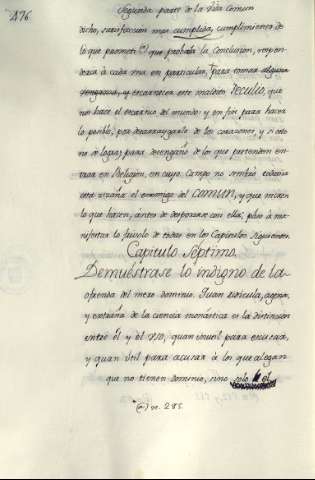 476
Segunda parte de la Vida Comun
dicho, satisfaccion mas cumplida, cumplimiento de
lo que prometi (*) que probada la Conclusion, respon-
deria á cada una en particular, para tomar alguna
venganza, y escarnecer este maldito PECULIO, que
nos hace el escarnio del mundo: y en fin para hacer
lo posible, por desarraygarlo de los corazones, y si esto
no se logra; para desengaño de los que pretenden en-
trar en Religion, en cuyo Campo no sembró todavia
esta zizaña el enemigo del COMUN, y que miren
lo que hacen, antes de desposarse con ella; paso á ma-
nifestar lo frivolo de todas en los Capitulos siguientes.
Capitulo Septimo.
Demuéstrase lo indigno de la
ofrenda del mero dominio. Quan ridicula, agena,
y extraña de la ciencia monástica es la distincion
entre él y el uso, quan inutil para escusar,
y quan util para acusar á los que alegan
que no tienen dominio, sino solo el
(*) n. 285.